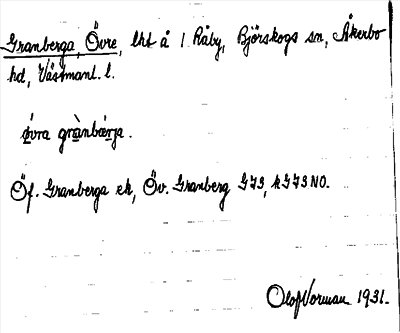 Granberga, Övre, lht å 1 Råby, Björskogs sn, Åkerbo
hd, Västmanl. l.
ö̀vra grànbær̀ja.
Öf. Granberga ek, Öv. Granberg GJ3, kGJ3NO.
Olof Norman 1931.